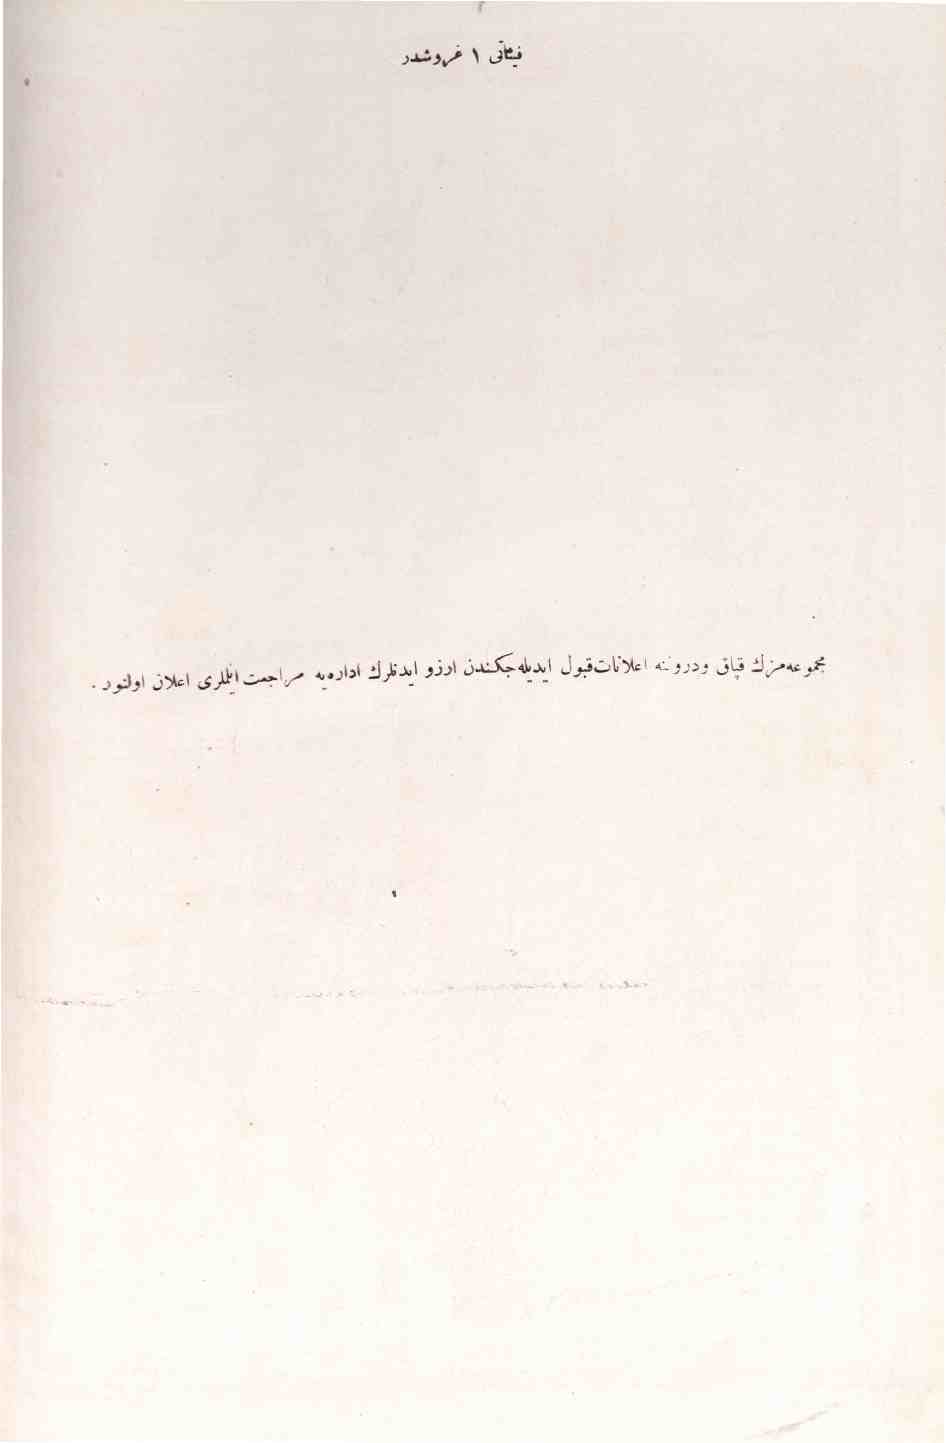 فیئاتی ۱ غروشدر
مجموعه‌مزك قپاق ودرونه اعلانات قبول ایدیله‌جکندن ارزو ایدنلرك اداره‌یه مراجعت ایللری اعلان اولنور .